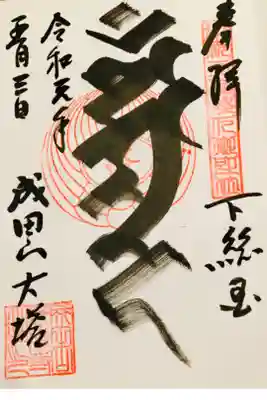 奉拝
下総国
令和元年
五月三日
成田山大塔